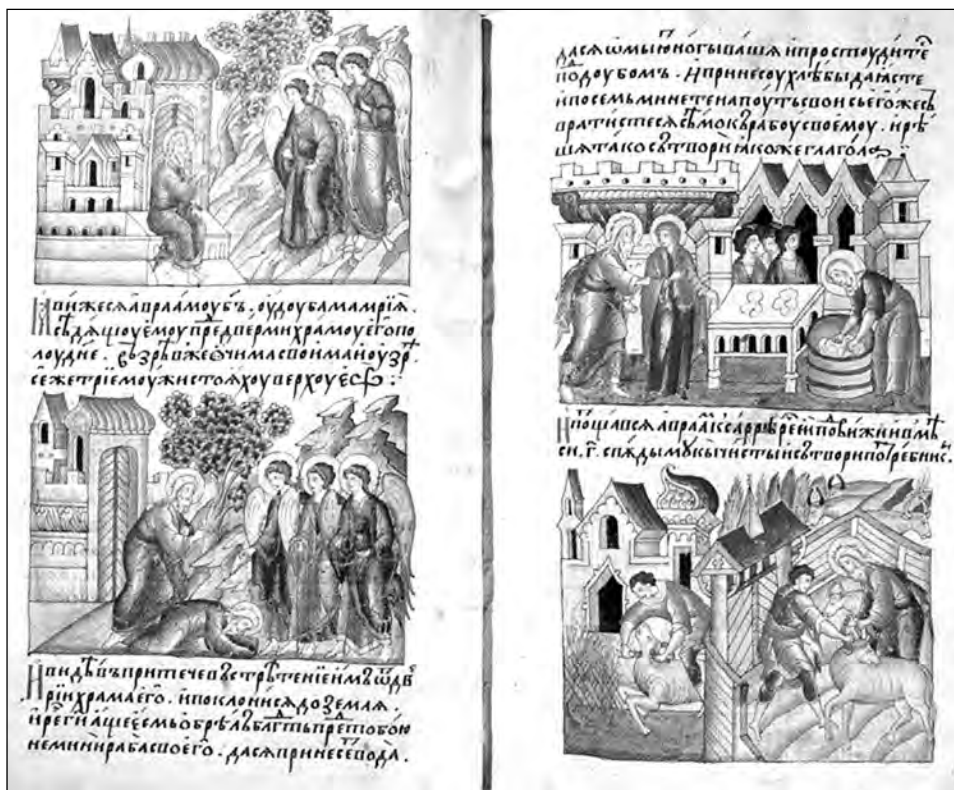 Ꙗвижесѧ авраамоу бъ , оу доуба мамрїѧ .
сѣдѧщоу емоу пред дверми храмоу его по
лоудне . воззрѣвже очима своима ноузрѣ
се же трїе моужи стоѧхоу верхоу есѡ :
Ꙗ видѣвъ притече въстрѣтенїе имъ ѿ двѣ
рїи храма его . и поклонисѧ до земаѧ .
и рег гиащеесмь обрелъ багть пред тобою
не мини раба своего . да сѧ принесе вода .
да сѧ ѡмыю ногы вашѧ и простоудите
под доубомъ . И принесоу хлѣбы да ꙗсте
и посемь минете на поуть свои сьегоже съ
вратистесѧ сѣмо къ рабоу своемоу . и рѣ
шѧ тако сътвори ꙗкоже глагола
И потщавсѧ авраам к саррѣ рече и подвижи и вмѣ
си .г. спѫды моукы чисты и сътвори потребникы .